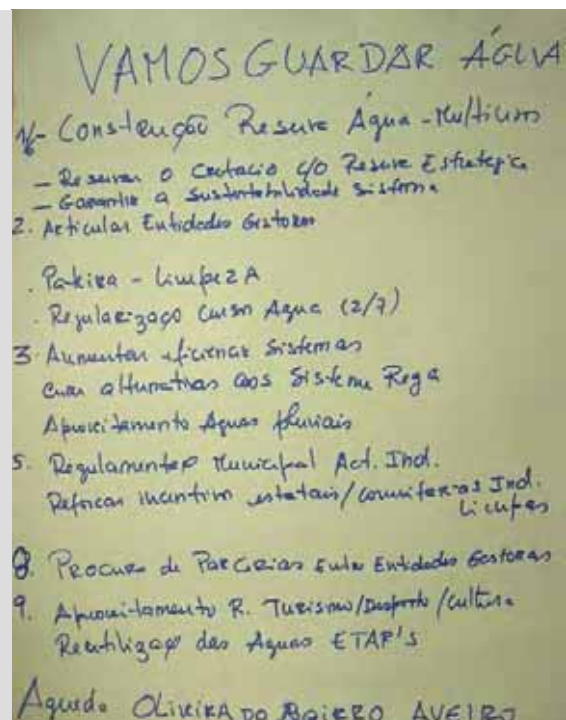 VAMOS GUARDAR ÁGUA
1- Construção Reserva Água - Multiusos
- Reservar o Cretácio c/o Reserva Estratégica
- Garantir a Sustentabilidade Sistema
2. Articular Entidades Gestoras
. Pateira - Limpeza
. Regularização Curso Água (2/7)
3. Aumentar eficiência Sistemas
Criar alternativas aos Sistema Rega
Aproveitamento Águas pluviais
5. Regulamentação Municipal Act. Ind.
Reforçar incentivos estatais/comunitários Ind.
Limpas
8. Procura de Parcerias Entre Entidades Gestoras
9. Aproveitamento R. Turismo/Desporto/Cultura
Reutilização das Águas ETAR'S
Agueda OLIVEIRA DO BAIRRO AVEIRO